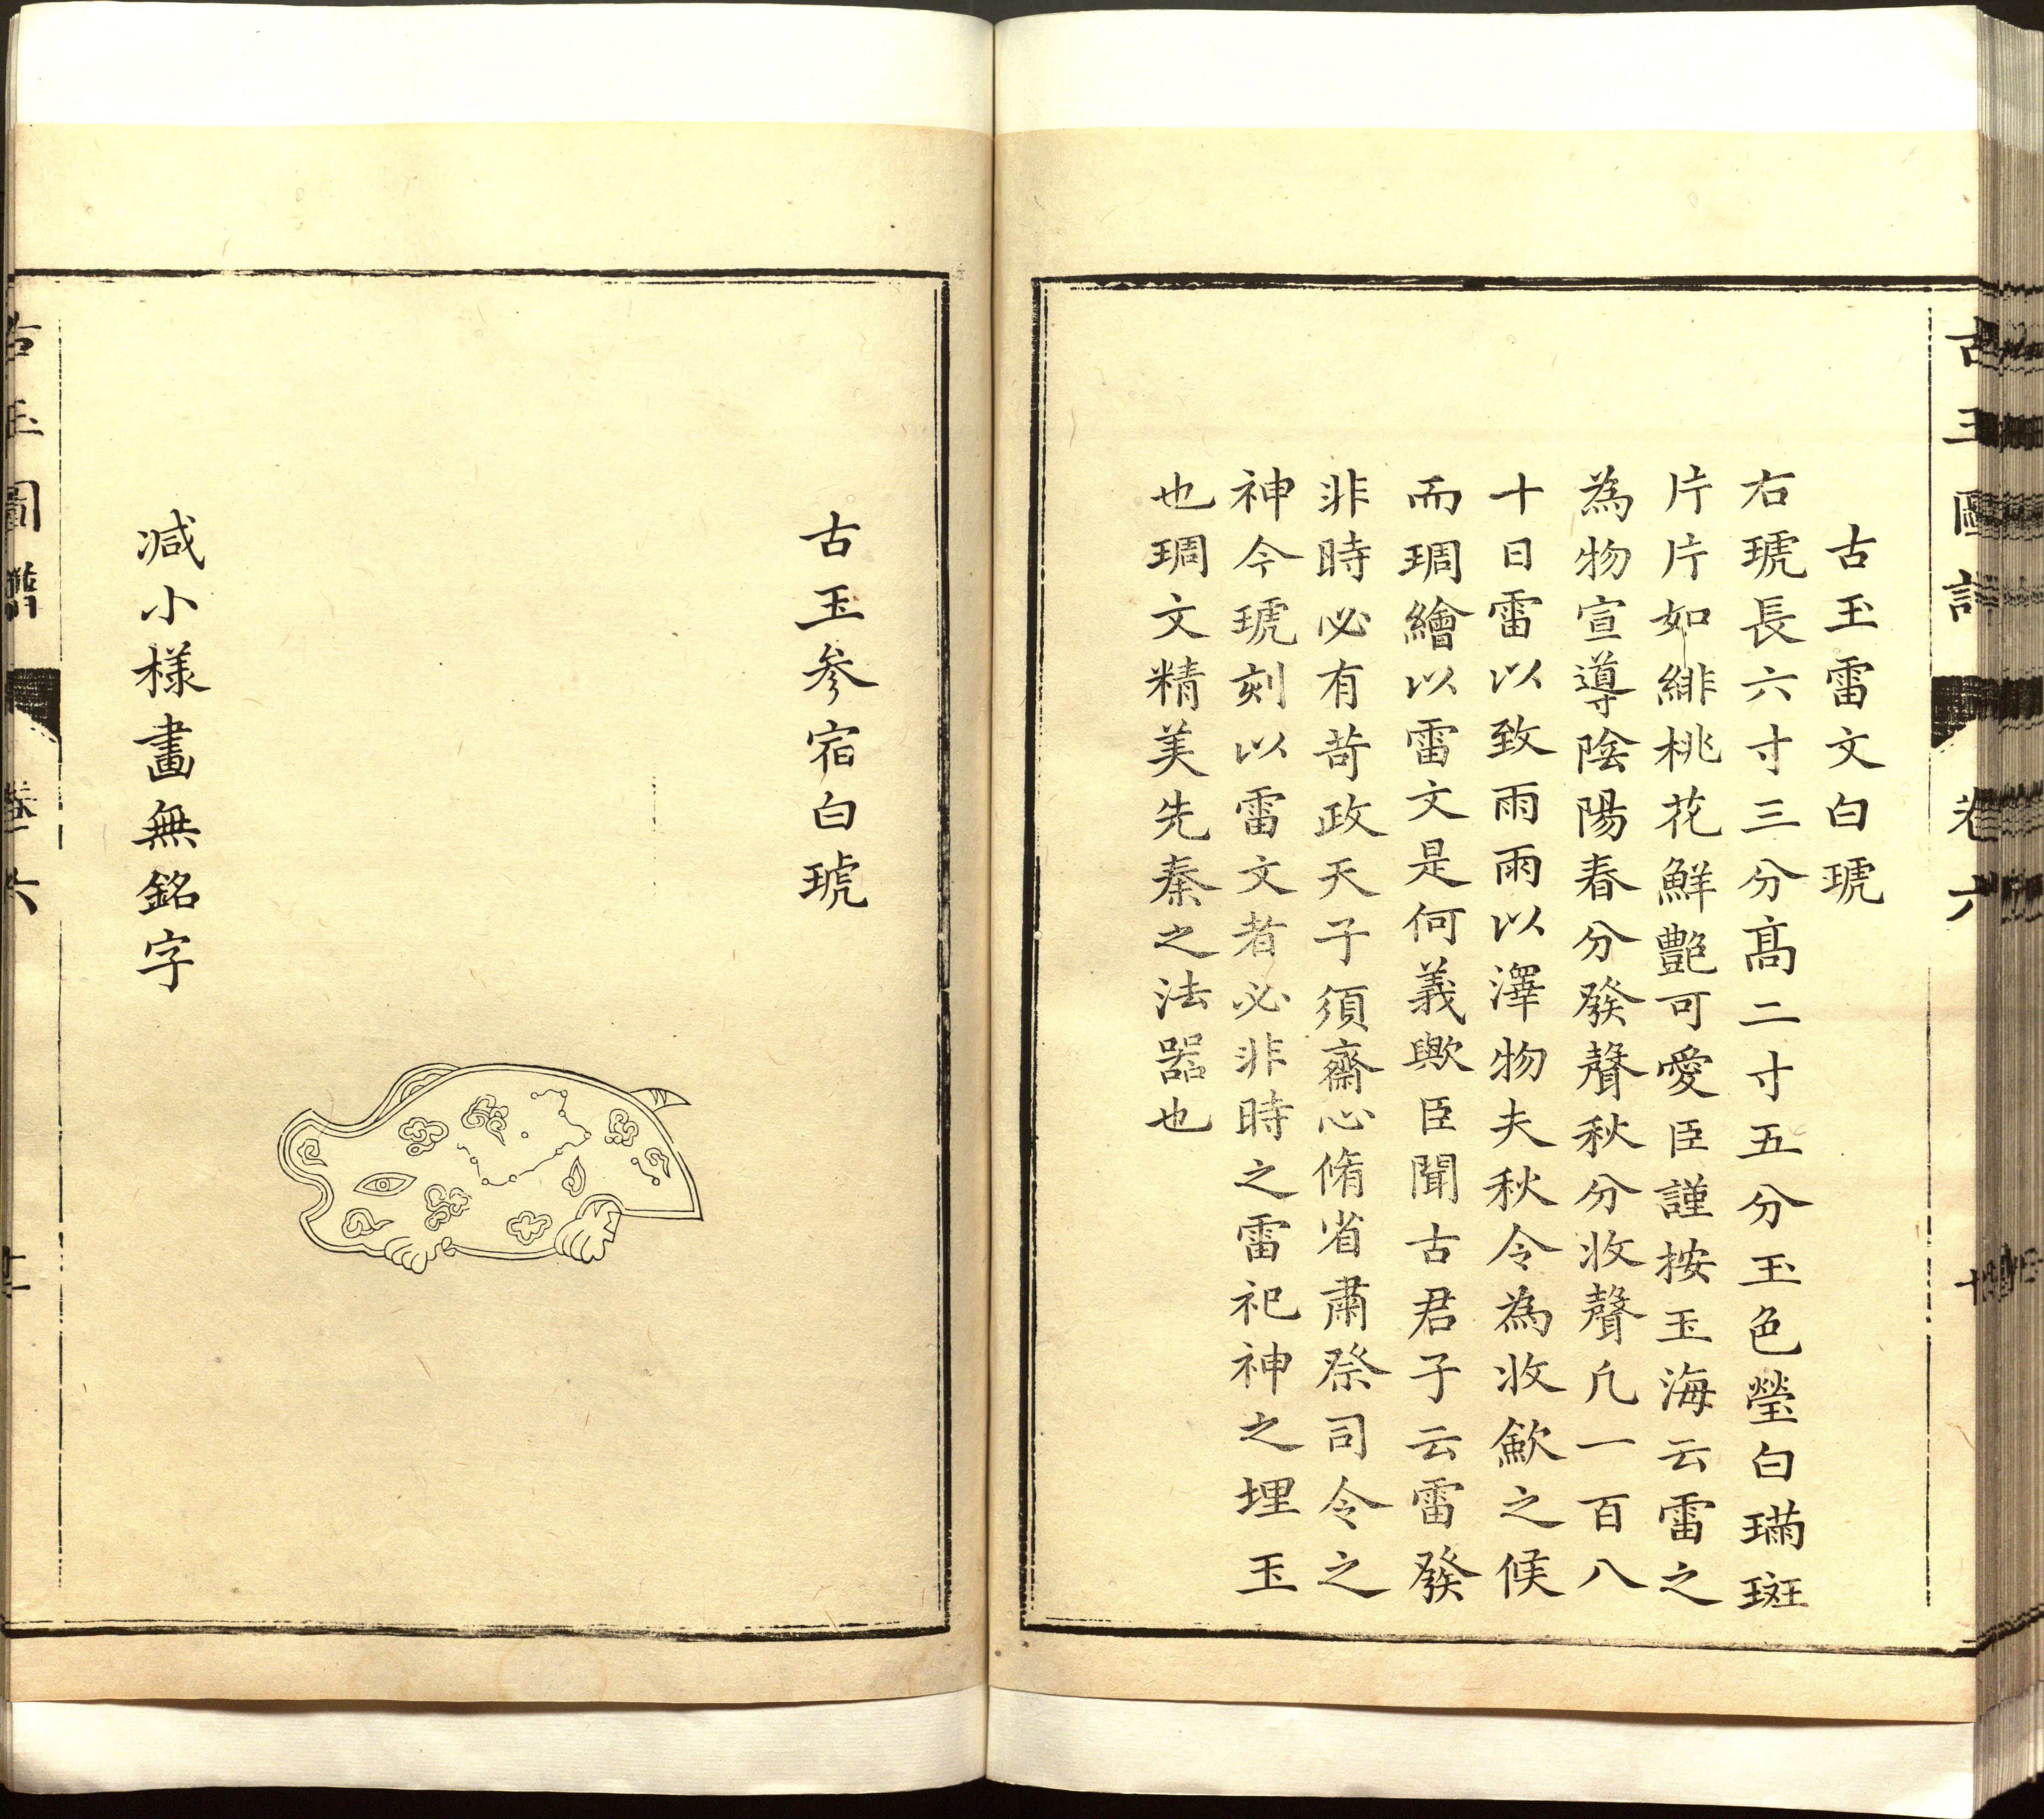 古玉圖譜 卷六 十
古玉雷文白琥
右琥長六寸三分高二寸五分玉色瑩白璊斑
片片如緋桃花鮮艷可愛臣謹按玉海云雷之
為物宣導陰陽春分發聲秋分收聲凡一百八
十日雷以致雨雨以澤物夫秋令為收歛之候
而琱繪以雷文是何義歟臣聞古君子云雷發
非時必有苛政天子須齋心脩省肅祭司令之
神今琥刻以雷文者必非時之雷祀神之埋玉
也琱文精美先秦之法器也
古玉參宿白琥
減小樣畫無銘字
古玉圖譜 卷六